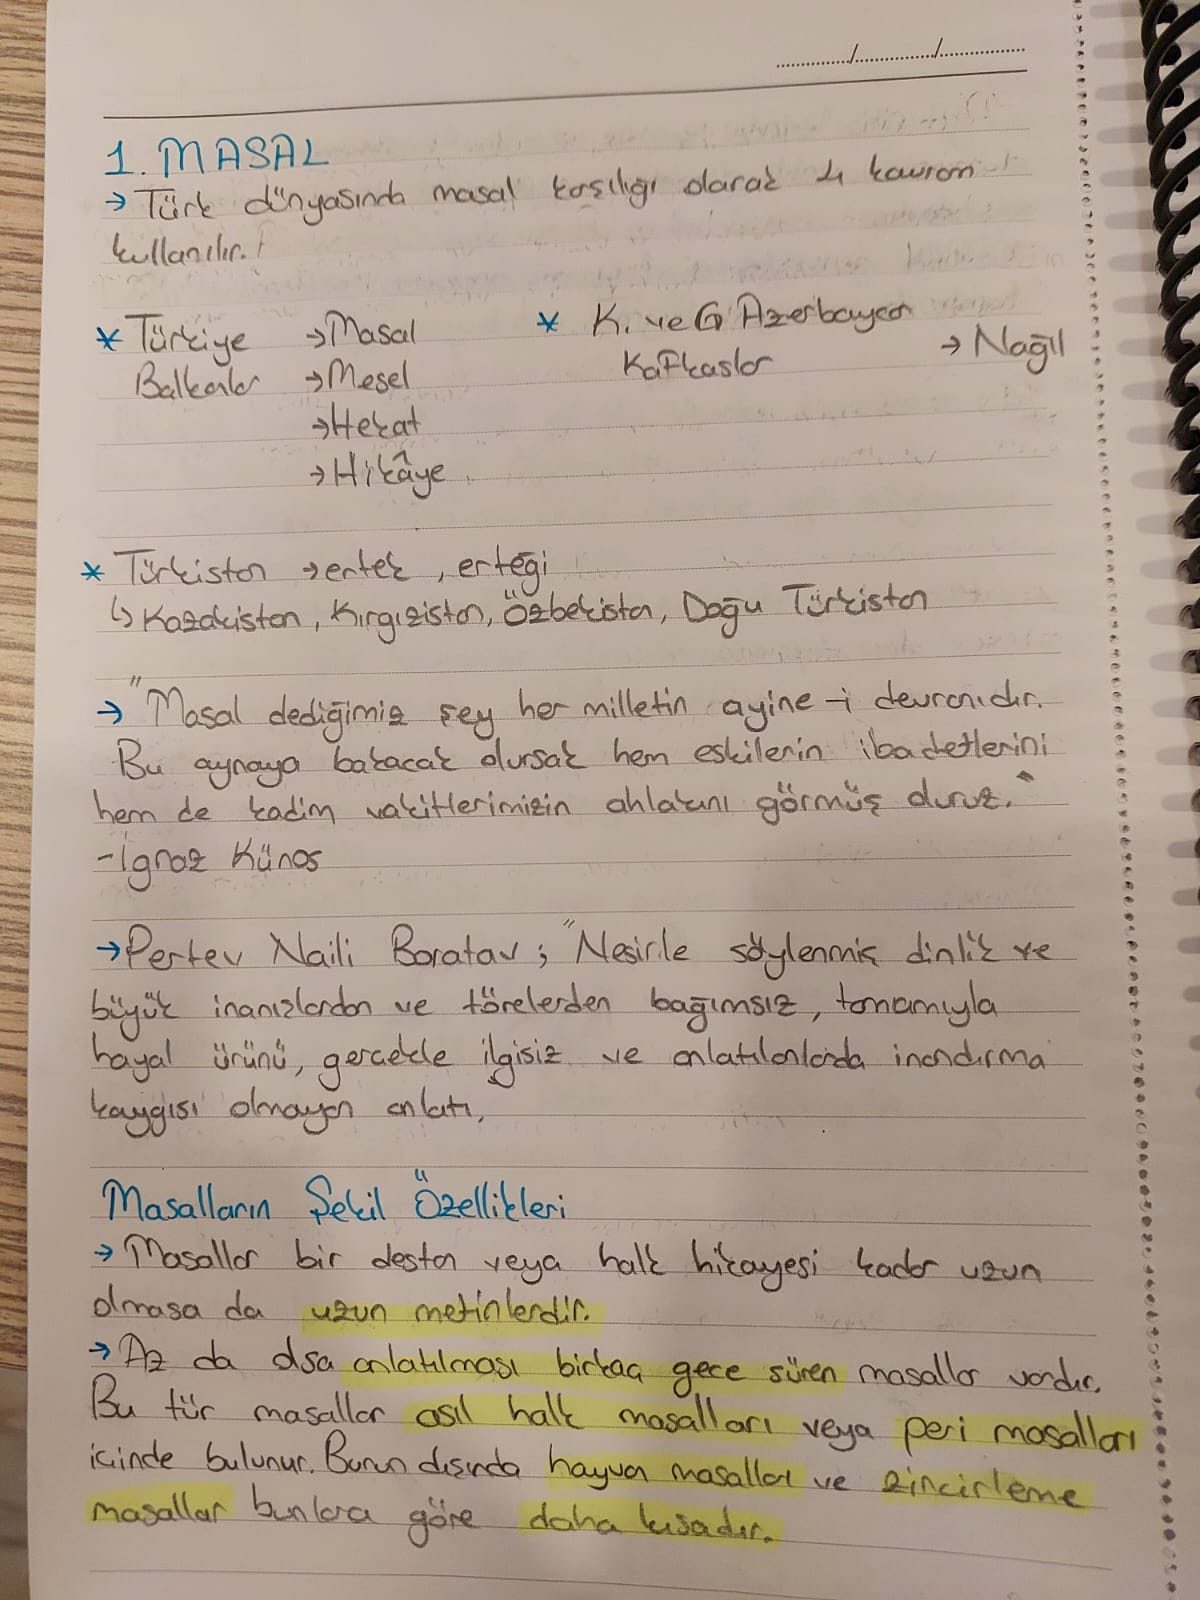 1. MASAL
→ Türk dünyasında masal karşılığı olarak 4 kavram
kullanılır.
* Türkiye → Masal
Balkanlar → Mesel
→ Hekat
→ Hikâye
* K. ve G Azerbaycan
Kafkaslar → Nağıl
* Türkistan → ertek, ertegi
↳ Kazakistan, Kırgızistan, Özbekistan, Doğu Türkistan
→ "Masal dediğimiz şey her milletin ayine-i devranıdır.
Bu aynaya bakacak olursak hem eskilerin ibadetlerini
hem de kadim vakitlerimizin ahlakını görmüş oluruz."
-İgnaz Künos
→ Pertev Naili Boratav; "Nesirle söylenmiş dinlik ve
büyük inanışlardan ve törelerden bağımsız, tamamıyla
hayal ürünü, gerçekle ilgisiz ve anlatılanlarda inandırma
kaygısı olmayan anlatı,
Masalların Şekil Özellikleri
→ Masallar bir destan veya halk hikayesi kadar uzun
olmasa da uzun metinlerdir.
→ Az da olsa anlatılması birkaç gece süren masallar vardır.
Bu tür masallar asıl halk masalları veya peri masalları
içinde bulunur. Bunun dışında hayvan masalları ve zincirleme
masallar bunlara göre daha kısadır.